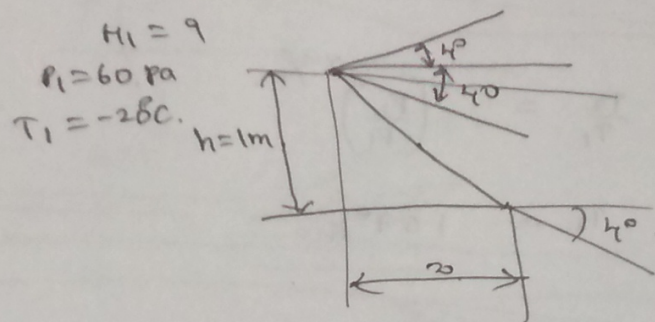 M1 = 9
P1 = 60 Pa
T1 = -28°C.
h = 1m
4°
4°
4°
x